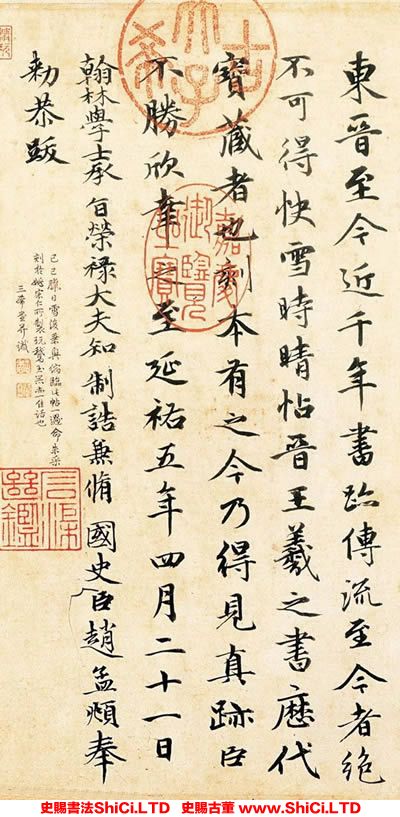 東晉至今近千年書跡傳流至今者絶
不可得快雪時晴帖晉王羲之書歷代
寶藏者也刻本有之今乃得見真跡臣
不勝欣幸之至延祐五年四月二十一日
翰林學士承旨榮祿大夫知制誥兼脩國史臣趙孟頫奉
勑恭跋
己巳臘日雪後乘興偶臨此帖一過命朱采
刻於
三希堂并識
嘉慶御覽之寶
三希堂
史賜書法ShiCi.LTD 史賜古董 www.ShiCi.LTD